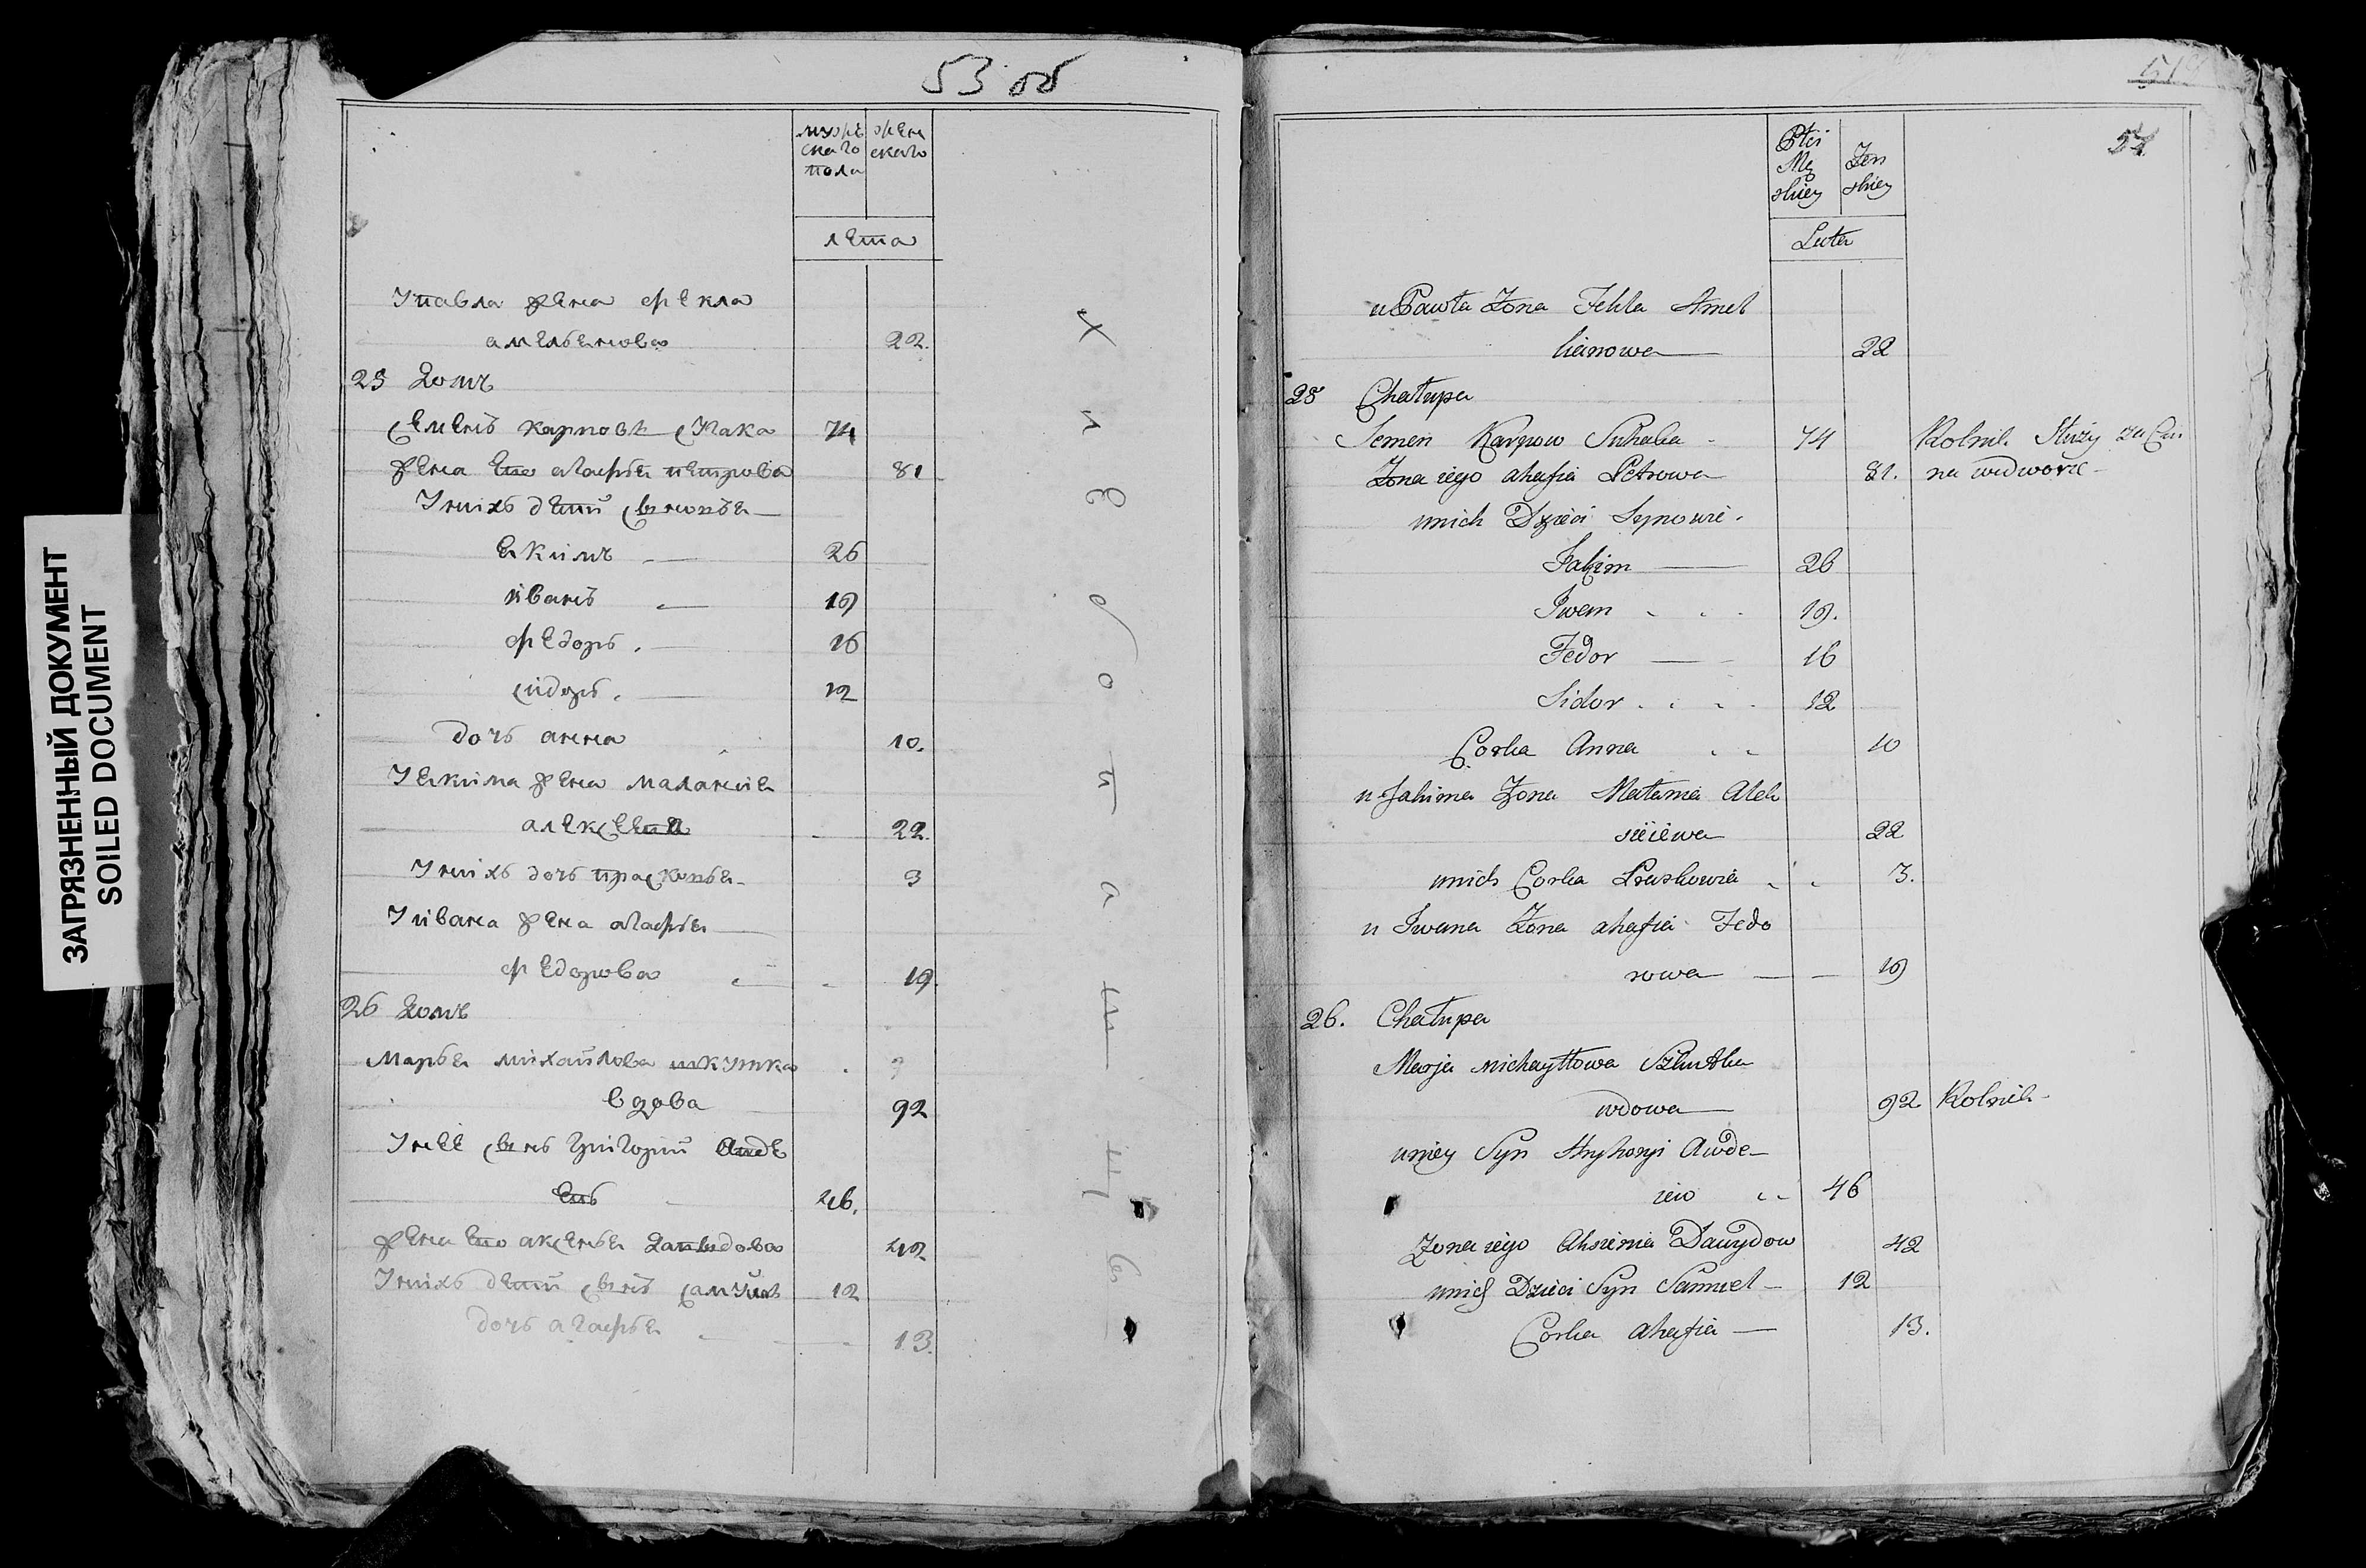 ЗАГРЯЗНЕННЫЙ ДОКУМЕНТ
SOILED DOCUMENT
53 об
мужъ
скаго
пола
жен
скаго
лета
У павла жена фекла
амельянова 22.
25 Домъ
Семенъ карповъ Сугака 74
жена его агафья петрова 81
У нихъ дети Сыновья
Якимъ 26
иванъ 19
федоръ 16
сидоръ 12
дочь анна 10.
У якима жена малания
алексеева 22.
У нихъ дочь прасковья 3
У ивана жена агафья
федорова 19.
26 Домъ
Марья михайлова шкутка
вдова 92
У нее Сынъ григорий авде
евъ 46.
жена его аксенья Давыдова 42
У нихъ дети Сынъ Самуилъ 12
дочь агафья 13.
54
Płci
Mę
skiey
Żen
skiey
Luta
u Pawła Żona Fekla Amel
lianowa 22
25 Chałupa
Semen Karpow Suhaka 74 Rolnik Służy
Żona iego ahafia Petrowa 81. na wdworze
unich Dzieci Synowie
Jakim 26
Iwan 19.
Fedor 16
Sidor 12
Corka Anna 10
u Jakima Żona Małania Alek
sieiewa 22
unich Corka Praskowia 3.
u Iwana Żona ahafia Fedo
rowa 19
26. Chałupa
Marja michayłowa Szkutka
wdowa 92 Rolnik
uniey Syn Hryhoryi Awde
iew 46
Żona iego Aksienia Dawydow 42
unich Dzieci Syn Samuel 12
Corka ahafia 13.